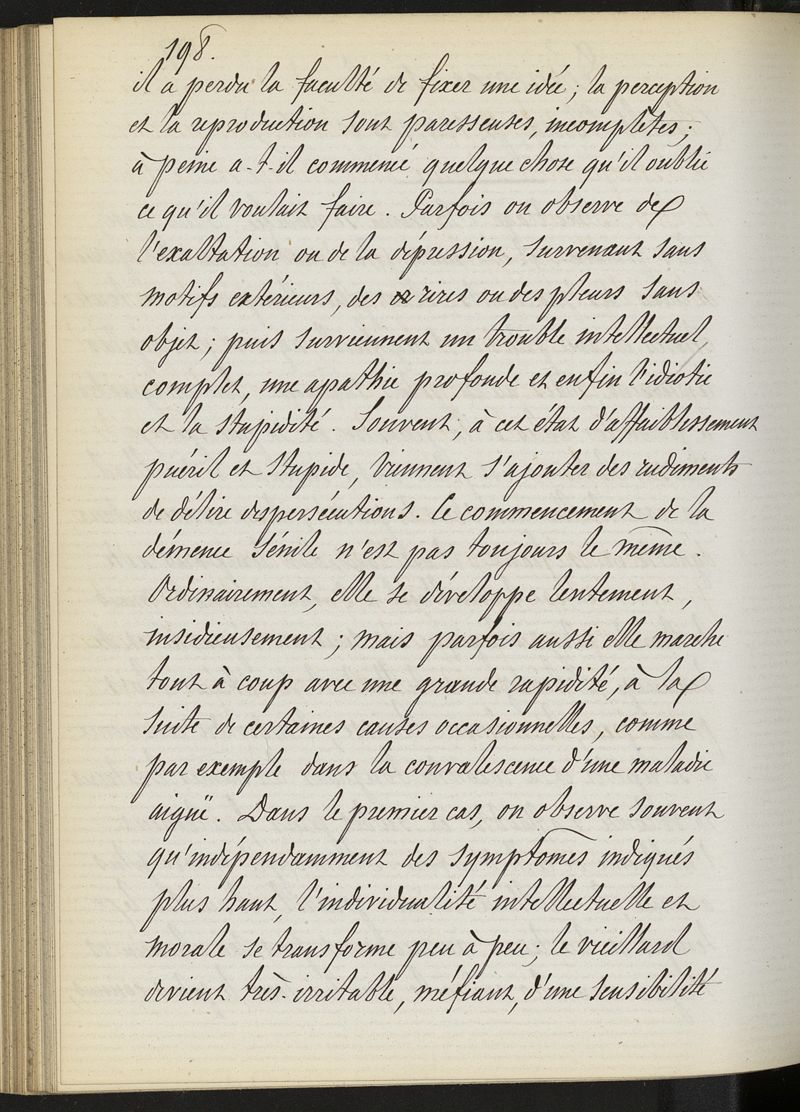 198.
il a perdu la faculté de fixer une idée ; la perception
et la reproduction sont paresseuses, incomplètes ;
à peine a-t-il commencé quelque chose qu'il oublie
ce qu'il voulait faire. Parfois on observe de
l'exaltation ou de la dépression, survenant sans
motifs extérieurs, des rires ou des pleurs sans
objet ; puis surviennent un trouble intellectuel
complet, une apathie profonde et enfin l'idiotie
et la stupidité. Souvent, à cet état d'affaiblissement
puéril et stupide, viennent s'ajouter des rudiments
de délire des persécutions. Le commencement de la
démence sénile n'est pas toujours le même.
Ordinairement, elle se développe lentement,
insidieusement ; mais parfois aussi elle marche
tout à coup avec une grande rapidité, à la
suite de certaines causes occasionnelles, comme
par exemple dans la convalescence d'une maladie
aiguë. Dans le premier cas, on observe souvent
qu'indépendamment des symptômes indiqués
plus haut, l'individualité intellectuelle et
morale se transforme peu à peu ; le vieillard
devient très-irritable, méfiant, d'une sensibilité